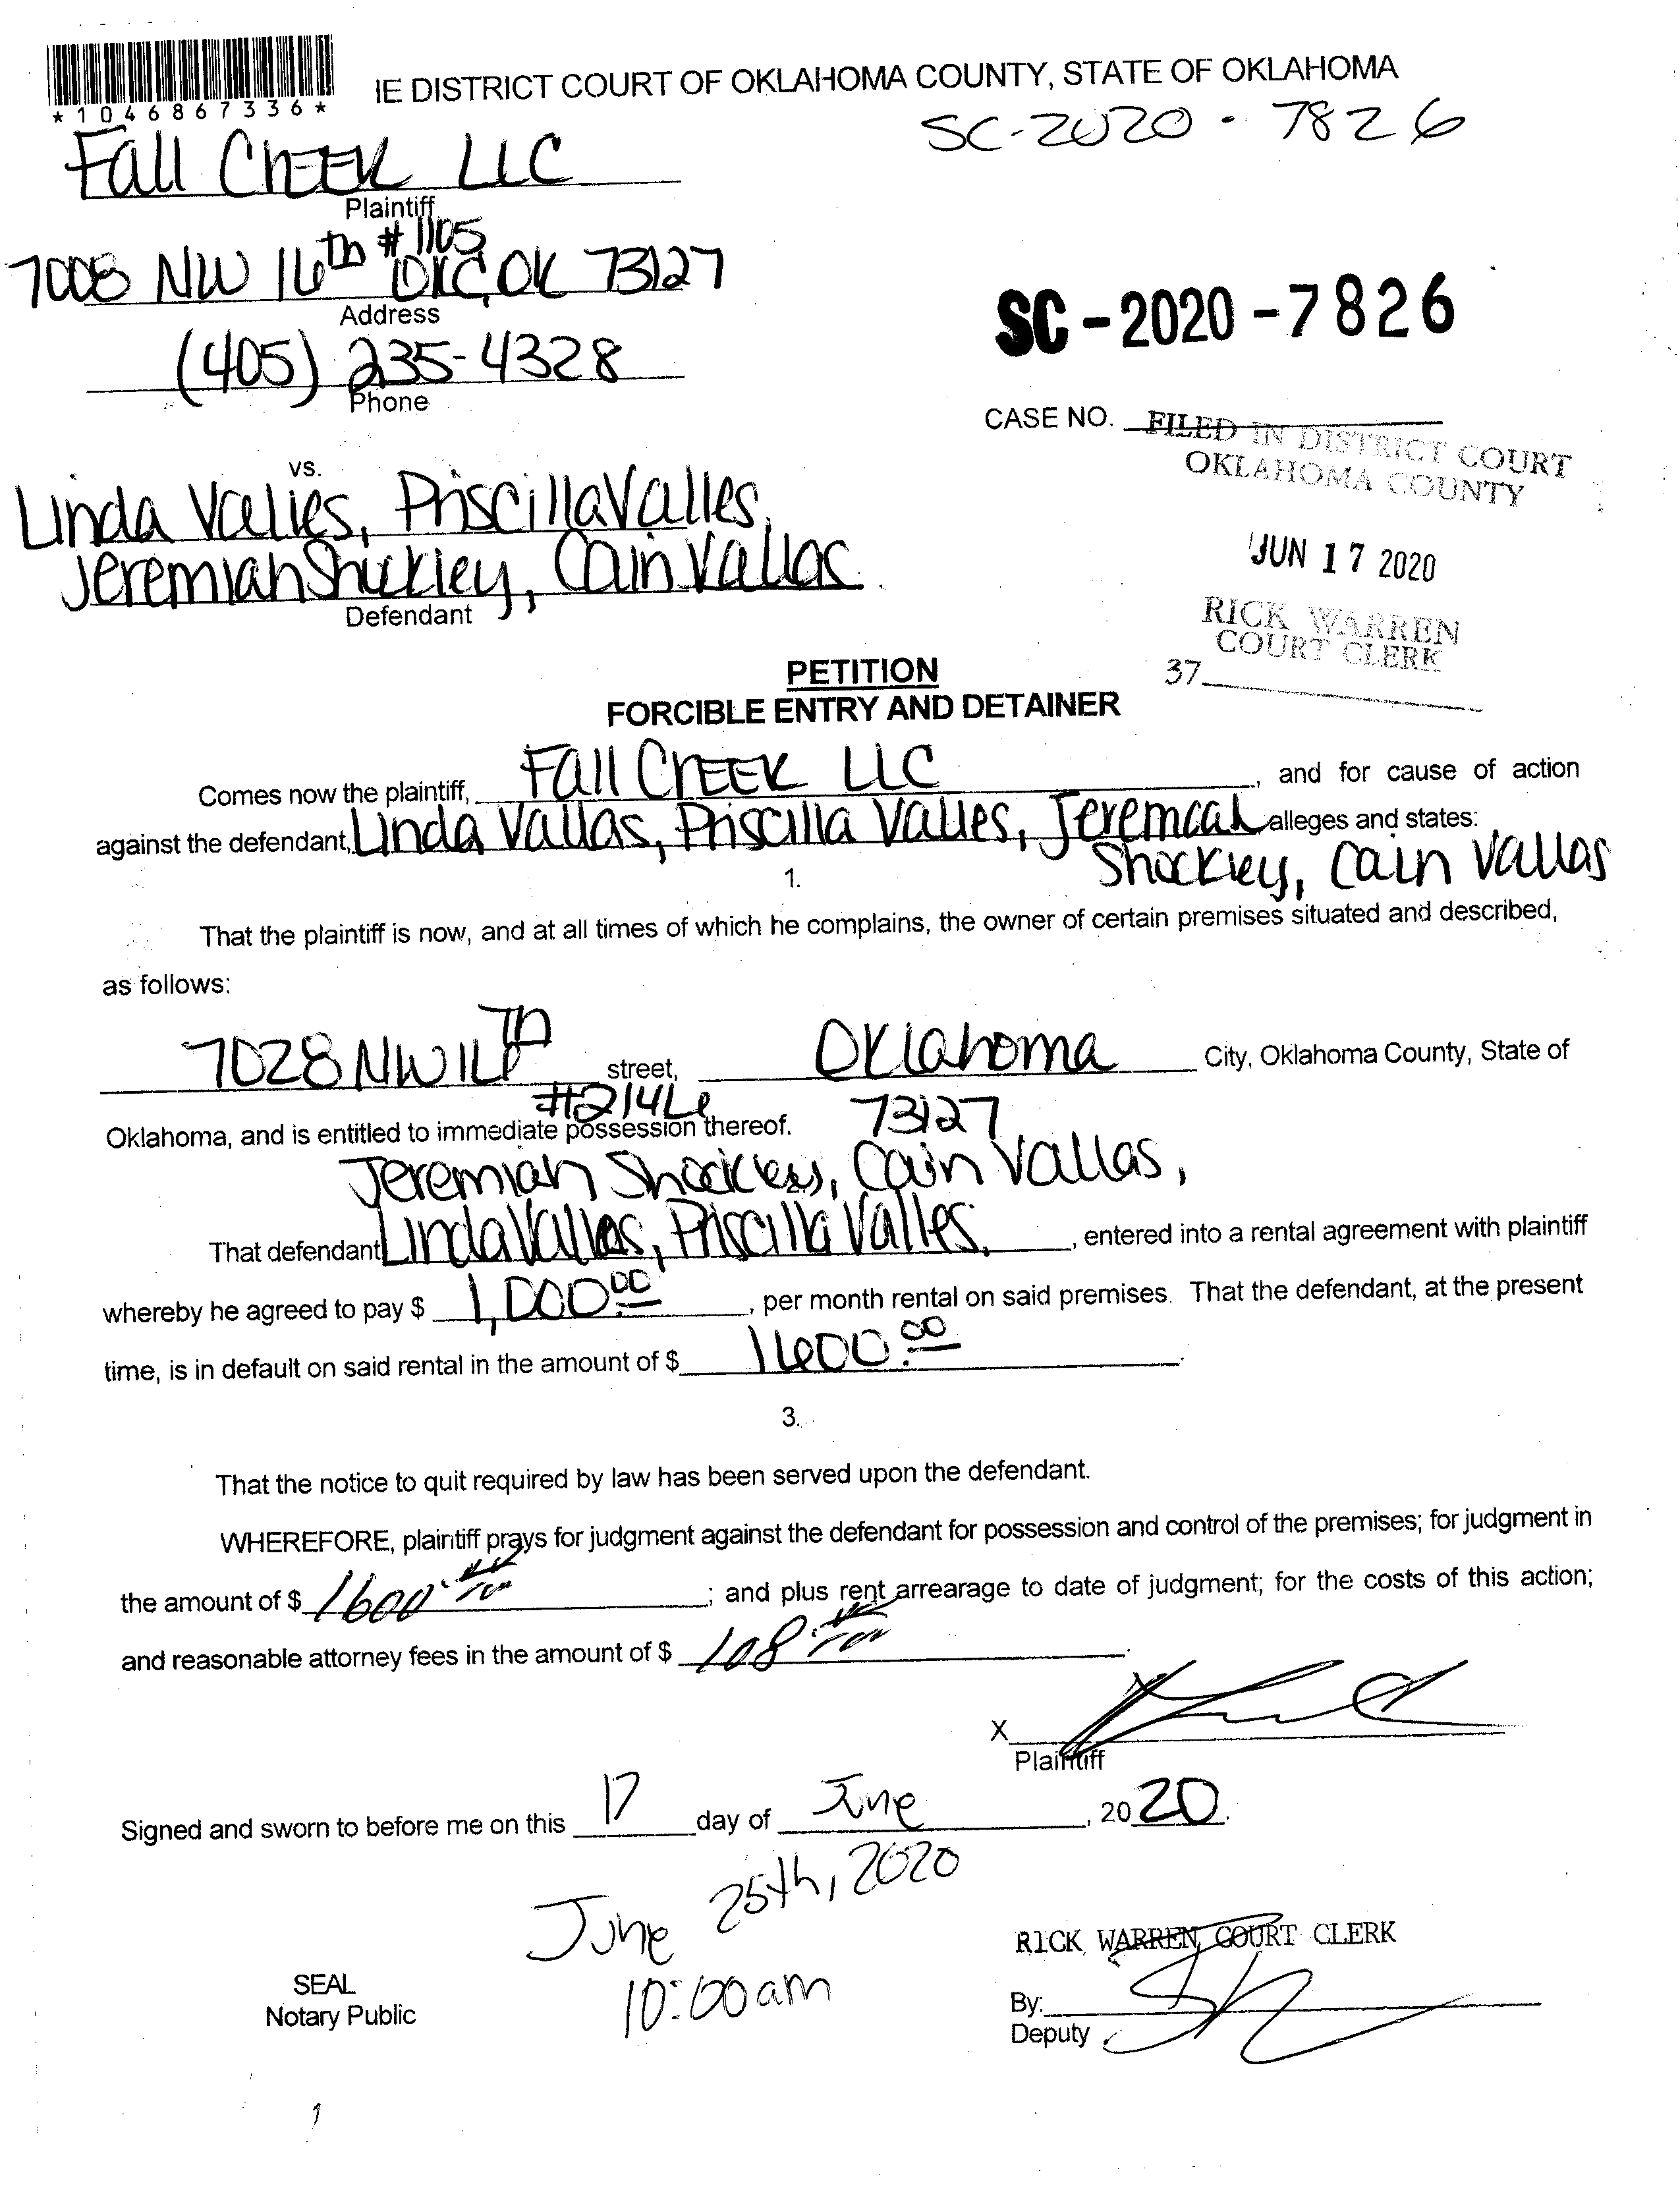 *1046867336*
IE DISTRICT COURT OF OKLAHOMA COUNTY, STATE OF OKLAHOMA
SC-2020-7826
Fall Creek LLC
Plaintiff
7008 NW 16th #1105 OKC, OK 73127
Address
SC-2020-7826
(405) 235-4328
Phone
CASE NO.
FILED IN DISTRICT COURT
OKLAHOMA COUNTY
vs.
Linda Valles, Priscilla Valles,
JUN 17 2020
Jeremiah Shockley, Cain Vallas
Defendant
RICK WARREN
COURT CLERK
37
PETITION
FORCIBLE ENTRY AND DETAINER
Comes now the plaintiff, Fall Creek LLC, and for cause of action
against the defendant, Linda Vallas, Priscilla Valles, Jeremiah alleges and states:
Shockley, Cain Vallas
1.
That the plaintiff is now, and at all times of which he complains, the owner of certain premises situated and described,
as follows:
7028 NW 16th street, Oklahoma City, Oklahoma County, State of
#2146 73127
Oklahoma, and is entitled to immediate possession thereof.
Jeremiah Shockley, Cain Vallas,
That defendant Linda Vallas, Priscilla Valles, entered into a rental agreement with plaintiff
whereby he agreed to pay $ 1,000.00, per month rental on said premises. That the defendant, at the present
time, is in default on said rental in the amount of $ 1600.00.
3.
That the notice to quit required by law has been served upon the defendant.
WHEREFORE, plaintiff prays for judgment against the defendant for possession and control of the premises; for judgment in
the amount of $ 1600; and plus rent arrearage to date of judgment; for the costs of this action;
and reasonable attorney fees in the amount of $ 108.
X
Plaintiff
Signed and sworn to before me on this 17 day of June, 2020.
June 25th, 2020
10:00am
RICK WARREN, COURT CLERK
SEAL
Notary Public
By:
Deputy
1